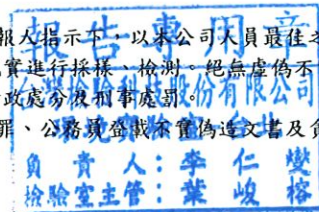 報告專用章
報人指示下，以本公司人員最佳之
實進行採樣、檢測。絕無虛偽不
政處分及刑事處罰。
罪、公務員登載不實偽造文書及貪
科技股份有限公司
負責人：李仁燮
檢驗室主管：葉峻榕